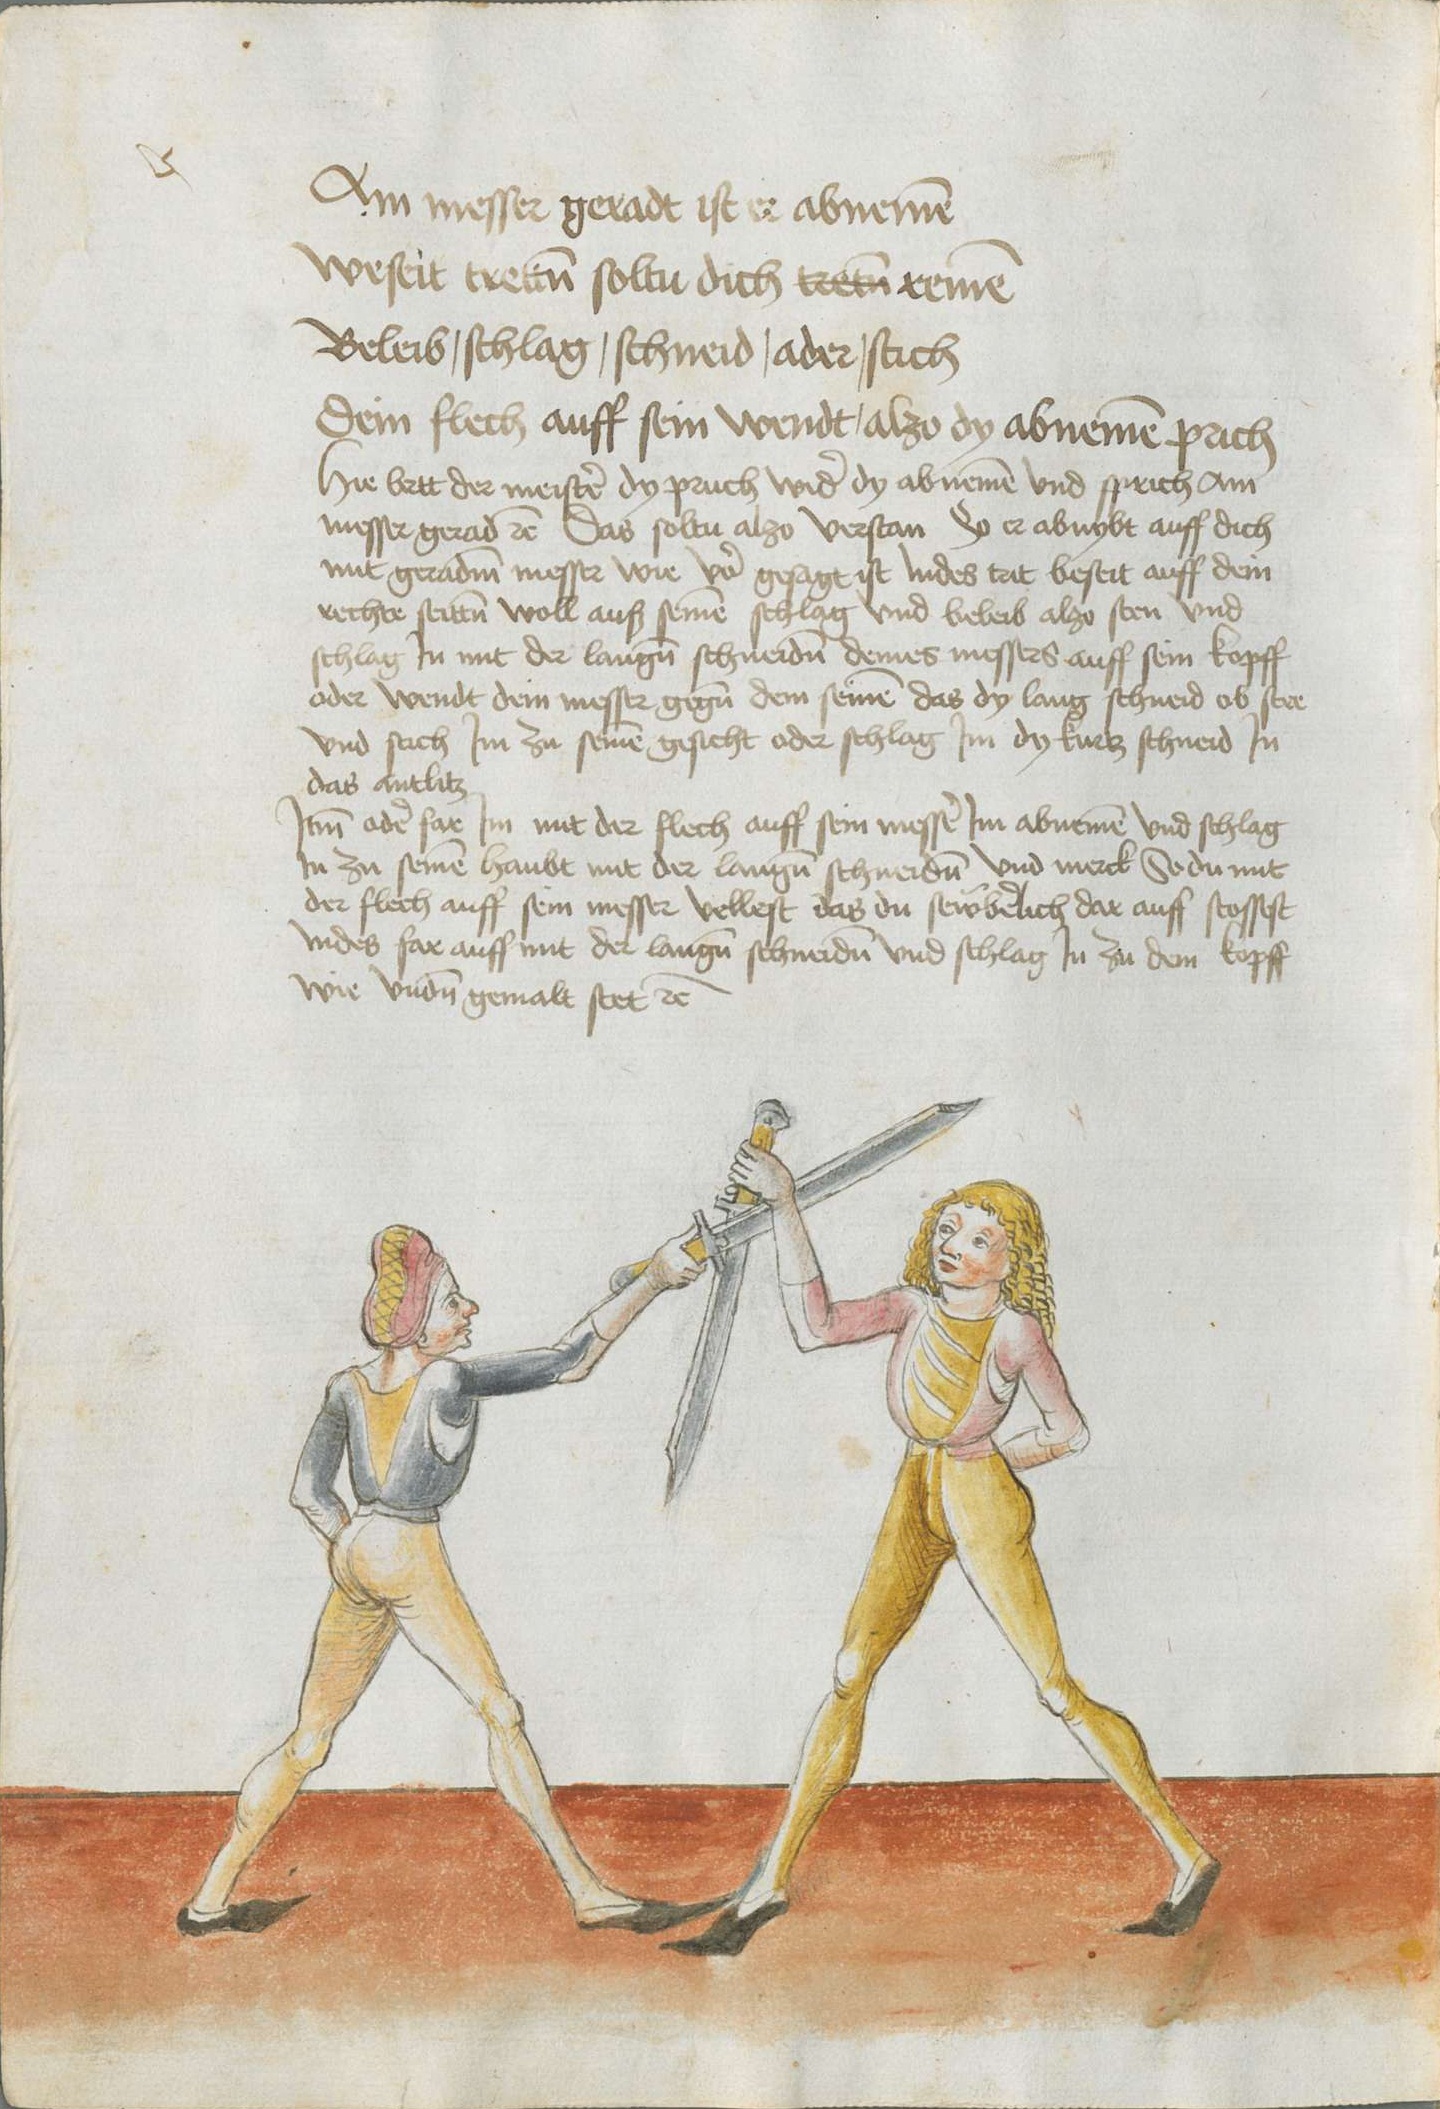 Am messer geradt ist er abnemē
Weseit trettn̄ soltu dich tretn̄ remē
Beleib / schlag / schneid / ader / stich
Dein flech auff sein wendt / alzo dy abnemē prich
Hie lert der meister̄ dy pruch wider̄ dy abnemē vnd sprich Am
messer gerad rē Das soltu alzo verstan So er abnybt auff dich
mit geradm̄ messer wie vor̄ gesagt ist Indes trit beseit auff dein
rechte seittn̄ woll auß seinē schlag vnd beleib alzo sten vnd
schlag In mit der langn̄ schneidn̄ deines messers auff sein kopff
oder wendt dein messer gegn̄ dem seinē das dy lang schneid ob stee
vnd stich Im zu seinē gesicht oder schlag Im dy kurtz schneid In
das antlitz
Itm̄ oder̄ far Im mit der flech auff sein messer̄ Im abnemē vnd schlag
In zu seinē haubt mit der langn̄ schneidn̄ vnd merck So du mit
der flech auff sein messer vellest das du dar auff stossest
Indes far auff mit der langn̄ schneidn̄ vnd schlag In zu dem kopff
wie vndn̄ gemalt stet rē